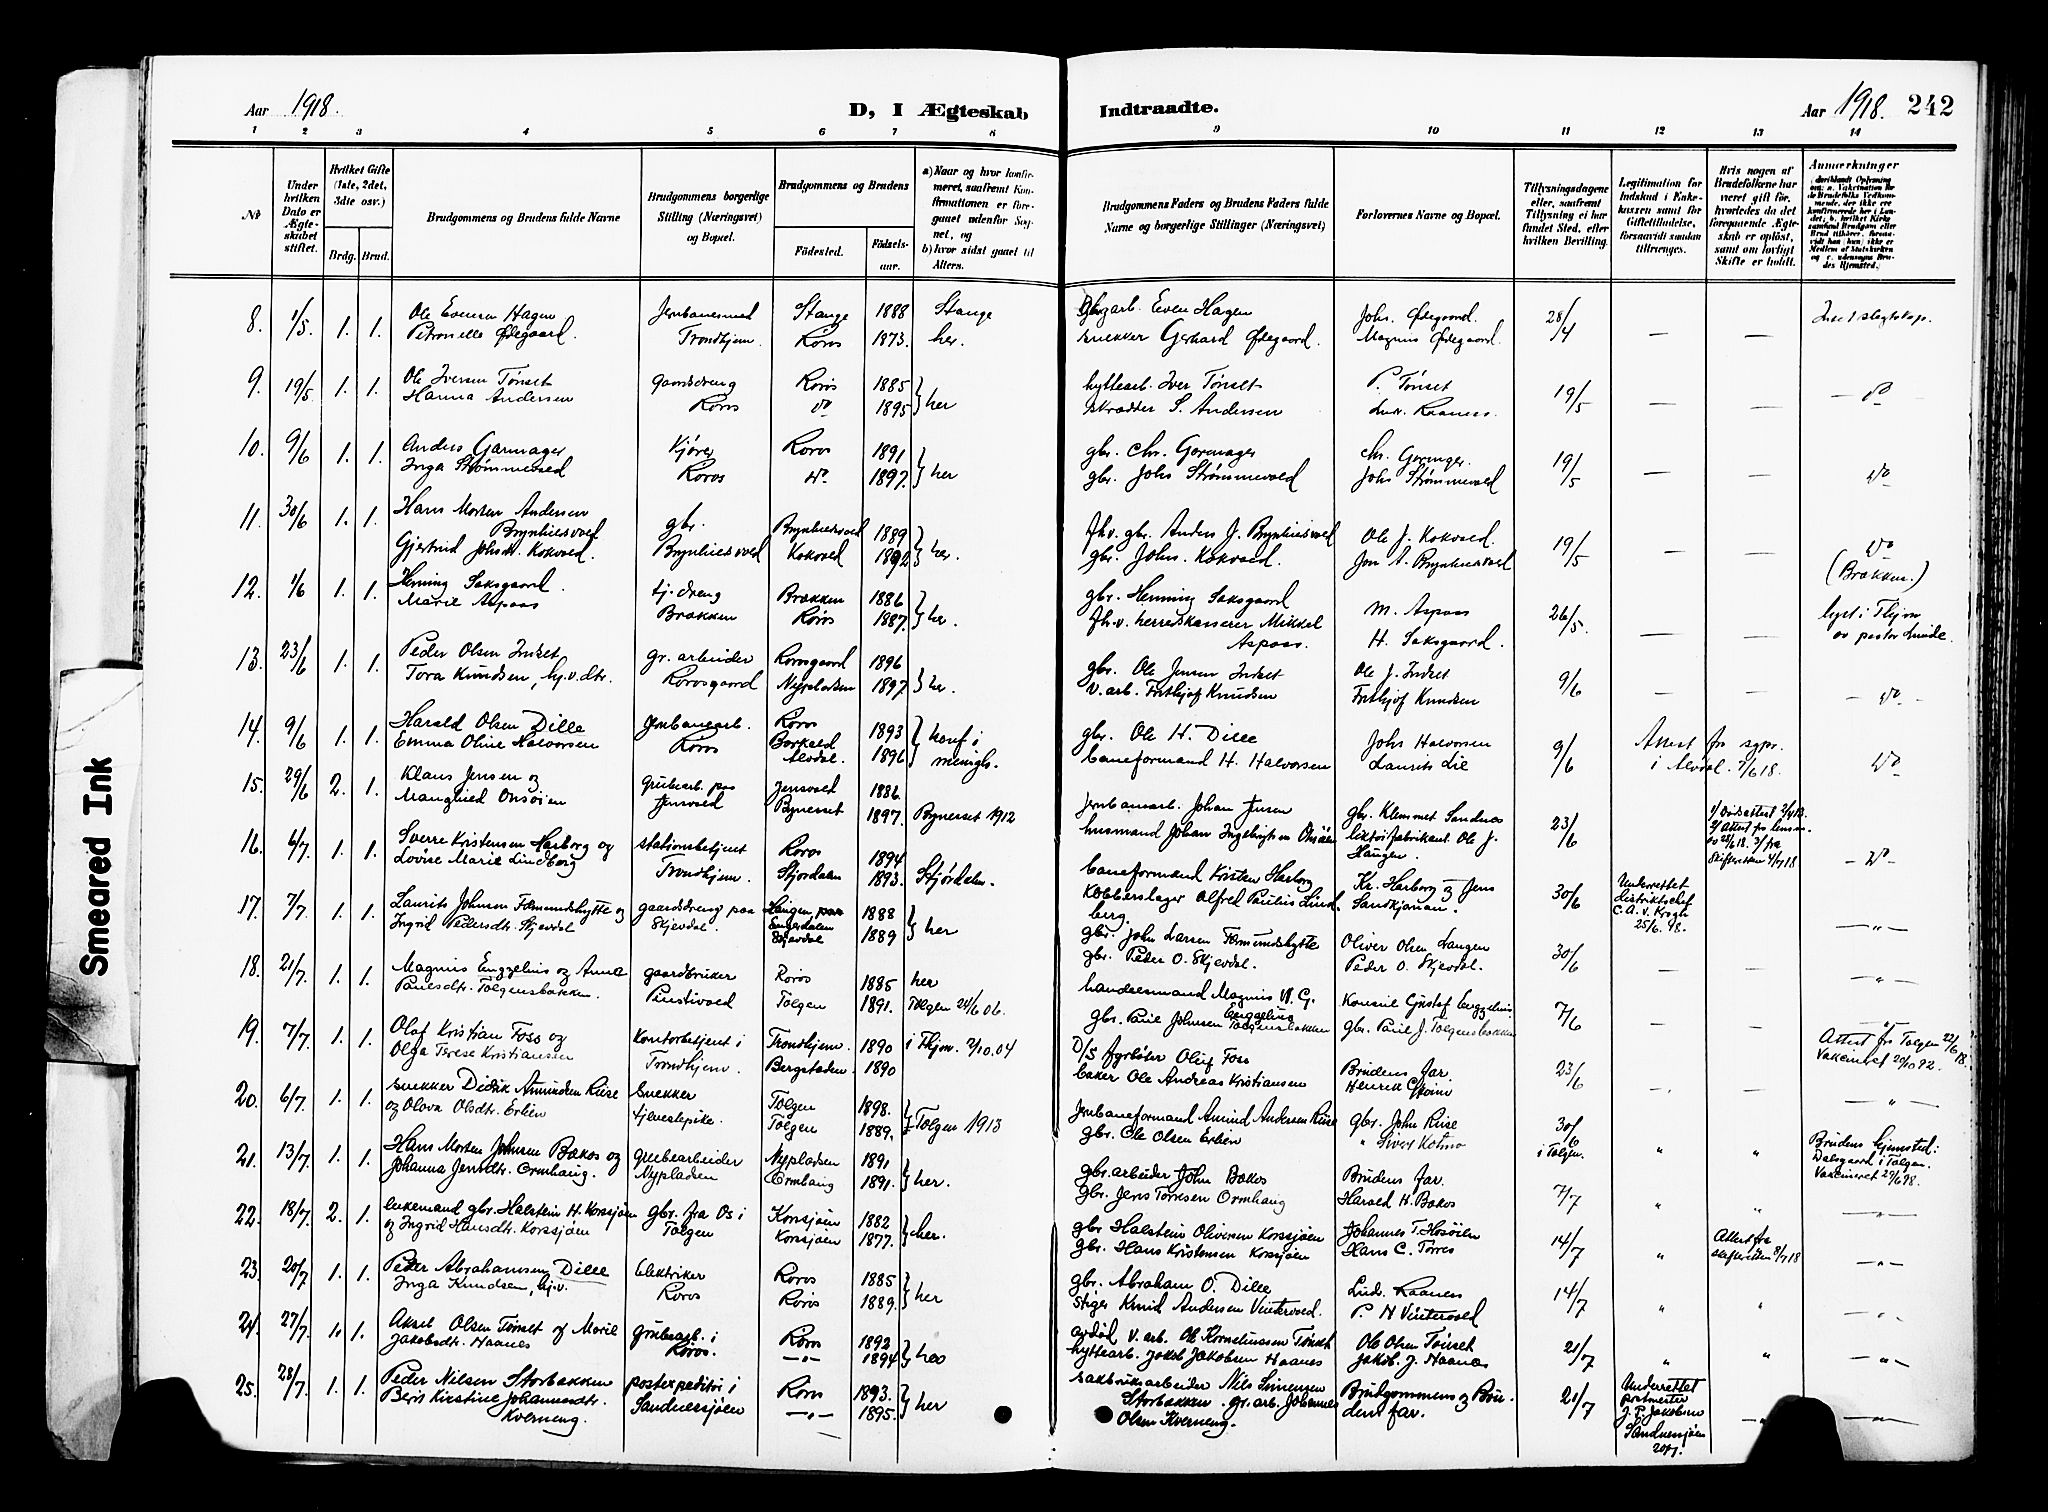 Aar 1918. D, I Ægteskab Indtraadte. Aar 1918. 242
1 2 3 4 5 6 7 8 9 10 11 12 13 14
№
Under hvilken Dato er Ægteskabet stiftet.
Hvilket Gifte (1ste, 2det, 3dte osv.)
Brdg. Brud.
Brudgommens og Brudens fulde Navne
Brudgommens borgerlige Stilling (Næringsvei) og Bopæl.
Brudgommens og Brudens
Fødested. Födsels-aar.
a) Naar og hvor konfirmeret, saafremt Konfirmationen er foregaaet udenfor Sognet, og
b) hvor sidst gaaet til Alters.
Brudgommens Faders og Brudens Faders fulde Navne og borgerlige Stillinger (Næringsvei)
Forlovernes Navne og Bopæl.
Tillysningsdagene eller, saafremt Tillysning ei har fundet Sted, efter hvilken Bevilling.
Legitimation for Indskud i Enkekassen samt for Giftetilladelse, forsaavidt saadan tiltrænges.
Hvis nogen af Brudefolkene har været gift før, hvorledes da det foregaaende Ægteskab er opløst, samt om lovligt Skifte er holdt.
Anmærkninger
8. 1/5. 1. 1. Ole Evensen Hagen Jernbanemand Stange 1888 Stange Gbgarb. Even Hagen Johs. Ødegaard. 28/4 — — Intet slegtskap.
Petronelle Ødegaard. Trondhjem. Röros 1873. her. snekker Gerhard Ødegaard. Magnus Ødegaard.
9. 19/5. 1. 1. Ole Iversen Tønset gaardsdreng Röros 1885 } her hyttearb. Iver Tønset P. Tönset 19/5 — — — do —
Hanna Andersen Röros do 1895 skrædder S. Andersen Ludv. Raanes.
10. 9/6 1. 1. Anders Garmager Kjører Röros 1891 } her gbr. Chr. Gormager Chr. Gormager. 19/5 — — do
Inga Strømmevold Röros do 1897. gbr. John Strømmevold John Strømmevold
11. 30/6 1. 1. Hans Morten Andersen
Brynhildsvold gbr. Brynhildsvold 1889 } her. fhv. gbr. Anders J. Brynhildsvold Ole J. Kokvold. 19/5 — — do
Gjertrud Johsdtr. Kokvold. Brynhildsvold Kokvold 1892 gbr. Johs. Kokvold. Jon A. Brynhildsvold (Brækken.)
12. 1/6 1. 1. Henning Saksgaard. tj. dreng Brækken 1886 } her. gbr. Henning Saksgaard M. Aspaas 26/5. — — lyst i Thjem
Marie Aspaas Brækken Röros 1887. fh.v. herredskasserer Mikkel Aspaas. H. Saksgaard. av pastor Lunde.
13. 23/6 1. 1. Peder Olsen Indset gr. arbeider Rörosgaard 1896 } her. gbr. Ole Jensen Indset Ole J. Indset 9/6 — — — do —
Tora Knudsen, hj.v. dtr. Rörosgaard Nypladsen 1897 v. arb. Frithjof Knudsen Frithjof Knudsen
14. 9/6 1. 1. Harald Olsen Dille Jernbanearb. Röros 1893 } konf i gbr. Ole H. Dille John Halvorsen 9/6 Attest fra sgpr.
Emma Oline Halvorsen Röros Borkald Alvdal. 1896 menigh. baneformand H. Halvorsen Laurits Lie i Alvdal. 7/6 18. do
15. 29/6 2. 1. Klaus Jensen og grubearb. paa Jensvold 1886. Jernbanearb. Johan Jensen gbr. Klemmet Sandnes 23/6 1/ Dødsattest
Manghild Onsöien Jensvold Bynesset 1897. Bynesset 1912 husmand Johan Ingebrigtsen Onsöien likörfabrikant Ole J. Haugen. 2/ Attest fra lensm. 28/6 18. 3/ fra Skifteretten 4/7 18 — do —
16. 6/7 1. 1. Sverre Kristensen Harborg og stationsbetjent Röros 1894 baneformand Kristen Harborg Kr. Harborg og Jens 30/6 Underrettet
Lovise Marie Lindborg Trondhjem. Stjordalen 1893. Stjördalen. Kobberslager Alfred Paulus Lindberg. Sandkjærnan. Distriktschef C. A. v. Krogh 25/6.98. — " —
17. 7/7 1. 1. Laurits Johnsen Fæmundshytte og gaardsdreng paa Langen paa 1888 } her gbr. John Larsen Fæmundshytte Oliver Olsen Langen 30/6 — — — " —
Ingrid Pedersdtr. Skjevdal Skjevdal. Engerdalen Skjevdal 1889 gbr. Peder O. Skjevdal. Peder O. Skjevdal.
18. 21/7 1. 1. Magnus Enggelius og Anne gaardbruker Röros 1885 her handelsmand Magnus W. G. Enggelius Konsul Gustaf Enggelius 7/6
Paulsdtr. Tolgensbakken. Pinstivold Tolgen 1891. Tolgen 24/6 06. gbr. Paul Johnsen Tolgensbakken gbr. Paul J. Tolgensbakken Attest fra Tolgen 22/6 18.
19. 7/7 1. 1. Olaf Kristian Foss og Kontorbetjent i Trondhjem. 1890 i Thjem 2/10.04 D/S fyrbøter Oluf Foss Brudens far 23/6 Vakcineret 20/10 92.
Olga Terese Kristiansen Trondhjem. Bergstaden. 1890 baker Ole Andreas Kristiansen Henrik — " —
20. 6/7 1. 1. snekker Didrik Amundsen Riise Snekker Tolgen 1898. } Tolgen 1913 Jernbaneformand Amund Andersen Riise gbr. John Riise 30/6
og Olova Olsdtr. Erlien tjenestepike. Tolgen 1889. gbr. Ole Olsen Erlien " Sivert Kotmo i Tolgen. " " Brudens hjemsted:
Dalsgaard i Tolgen.
Vakcineret 29/6 98.
21. 13/7 1. 1. Hans Morten Johnsen Bakos og grubearbeider Nypladsen 1891 } her. gbr. arbeider John Bakos Brudens far. 7/7 " "
Johanna Jensdtr. Ormhaug. Nypladsen Ormhaug 1891. gbr. Jens Torresen Ormhaug Harald H. Bakos — " —
22. 18/7 2. 1. enkemand gbr. Halstein H. Korssjøen gbr. fra Os i Korssjøen 1882 } her. gbr Halstein Oliversen Korssjøen Johannes T. Hosöien 14/7 " Attest fra
og Ingrid Hansdtr. Korssjøen Tolgen Korssjøen 1877. gbr. Hans Kristensen Korssjøen Hans C. Torres skifteretten 8/7 18 — " —
23. 20/7 1. 1. Peder Abrahamsen Dille Elektriker Röros 1885 } her gbr. Abraham O. Dille Lud. Raanes 14/7 " " — " —
Inga Knudsen, hj.v. Röros Röros 1889. Stiger Knud Andersen Vintervold. P. H Vintervold
24. 27/7. 1. 1. Aksel Olsen Tønset og Marie grubearb. i Röros 1892 } her avdød v. arb. Ole Korneliussen Tønset Ole Olsen Tønset 21/7 " " — " —
Jakobsdtr. Haanes Röros. — " — 1894 hyttearb. Jakob Jakobsen Haanes Jakob. J. Haanes
25. 28/7. 1. 1. Peder Nilsen Storbækken postexpeditör i Röros 1893. } her sakbruksarbeider Nils Simensen Brudgommens og Bru- 21/7 Underrettet
Berit Kirstine Johannesdtr. Kverneng. Sandnessjøen — " — 1895. Storbækken. gr. arb. Johannes Olsen Kverneng. dens far. postmester J. P. Jakobsen Sandnessjøen 20/7. — " — — " —
Smeared Ink